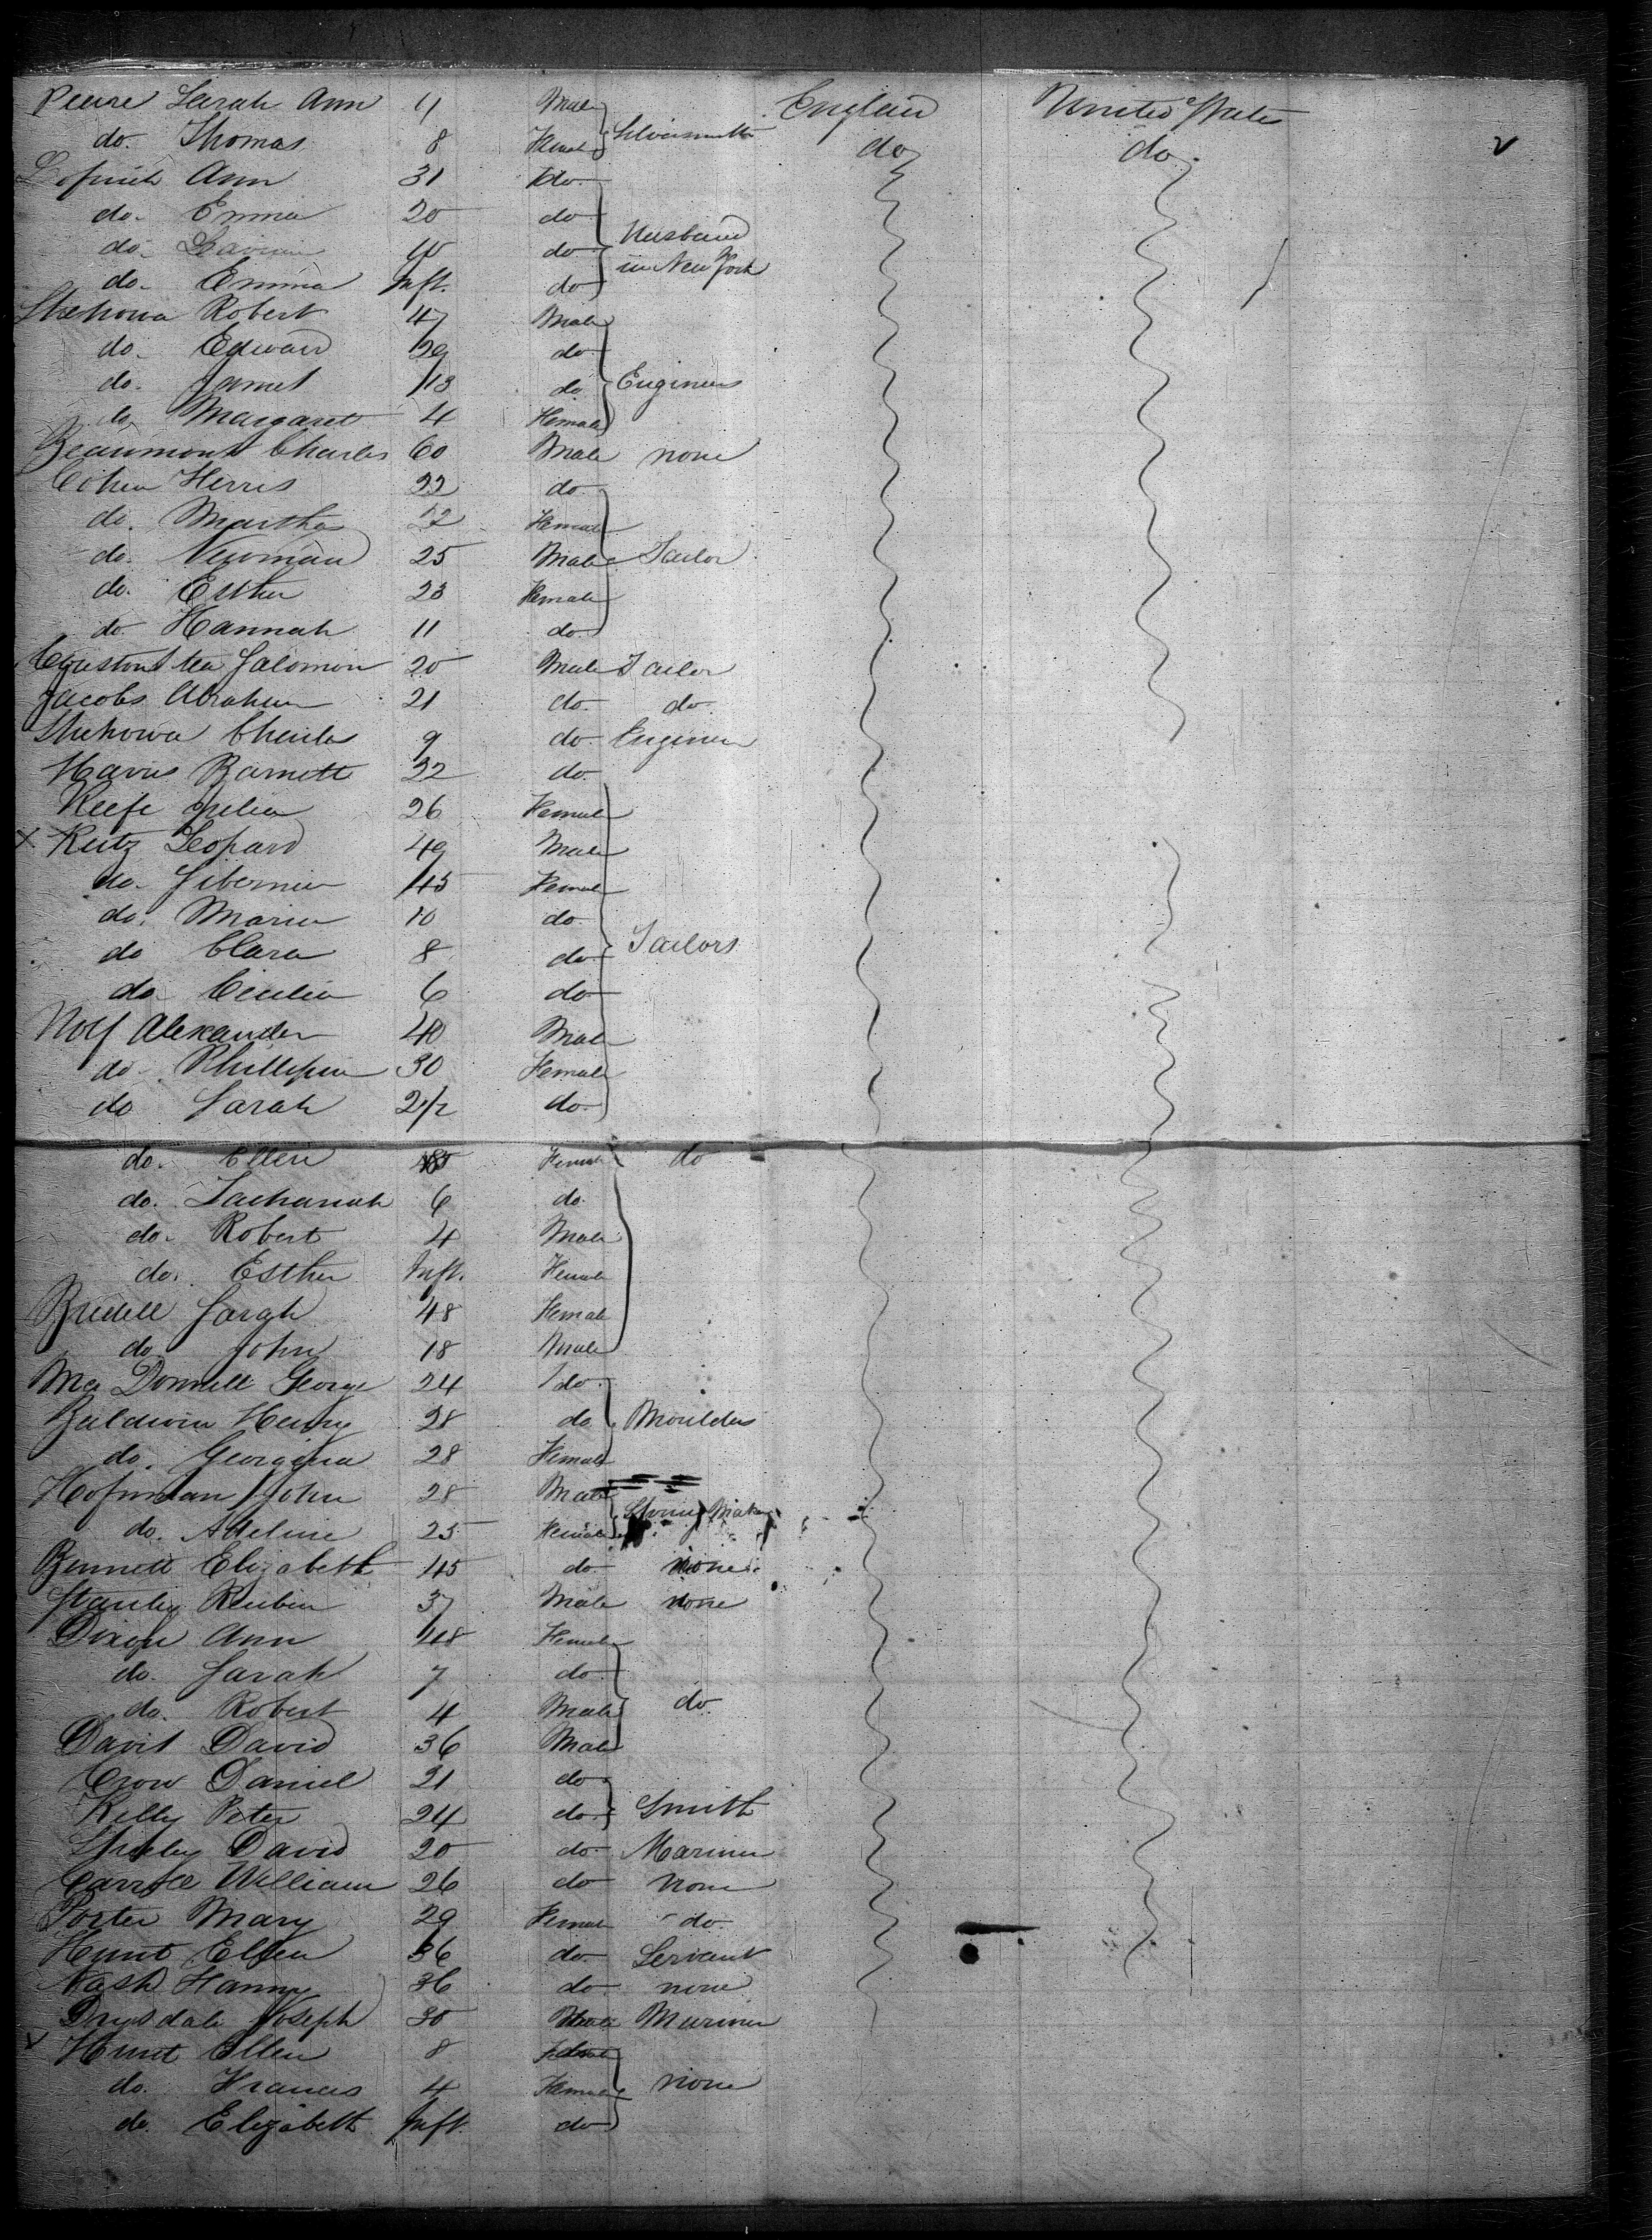 Sarah Ann 11 Male England United States
do. Thomas 8 Female Silversmith do do
Ann 31 do
do. Emma 20 do
do. Lavinia do Husband
do. Emma Inft. do in New York
Robert 47 Male
do. Edward 29 do
do. James 13 do Engineers
do. Margaret 4 Female
Beaumont Charles 60 Male none
Cohen Herris 22 do
do. Martha 22 Female
do. Newman 25 Male Tailor
do. Esther 23 Female
do Hannah 11 do
Salomon 20 Male Tailor
Jacobs Abraham 21 do. do.
Charles 9 do. Engineer
Harris Barnett 22 do.
Keefe Julia 26 Female
x Kutz Leopard 49 Male
do. 45 Female
do. Maria 10 do
do Clara 8 do Tailors
do Cecilia 6 do
Wolf Alexander 40 Male
do. Phillipina 30 Female
do Sarah 2 1/2 do
do. Ellen Female do
do. Zachariah 6 do.
do. Robert 4 Male
do. Esther Inft. Female
Bridell Sarah 48 Female
do. John 18 Male
Mc Donnell George 24 do.
Baldwin Henry 28 do. Moulders
do. Georgina 28 Female
Hofmman John 28 Male
do. Adeline 25 Female Maker
Bennett Elizabeth 45 do none
Stanley Reuben 37 Male none
Dixon Ann 48 Female
do. Sarah 7 do
do. Robert 4 Male do.
Davis David 36 Male
Crow Daniel 21 do
Kelly Peter 24 do. Smith
David 20 do. Mariner
Carroll William 26 do none
Porter Mary 29 Female do.
Hunt Ellen 36 do. Servant
Nash Hanny 36 do. none
Drysdale Joseph 30 Male Mariner
x Hunt Ellen 8
do. Frances 4 Female none
do. Elizabeth Inft. do